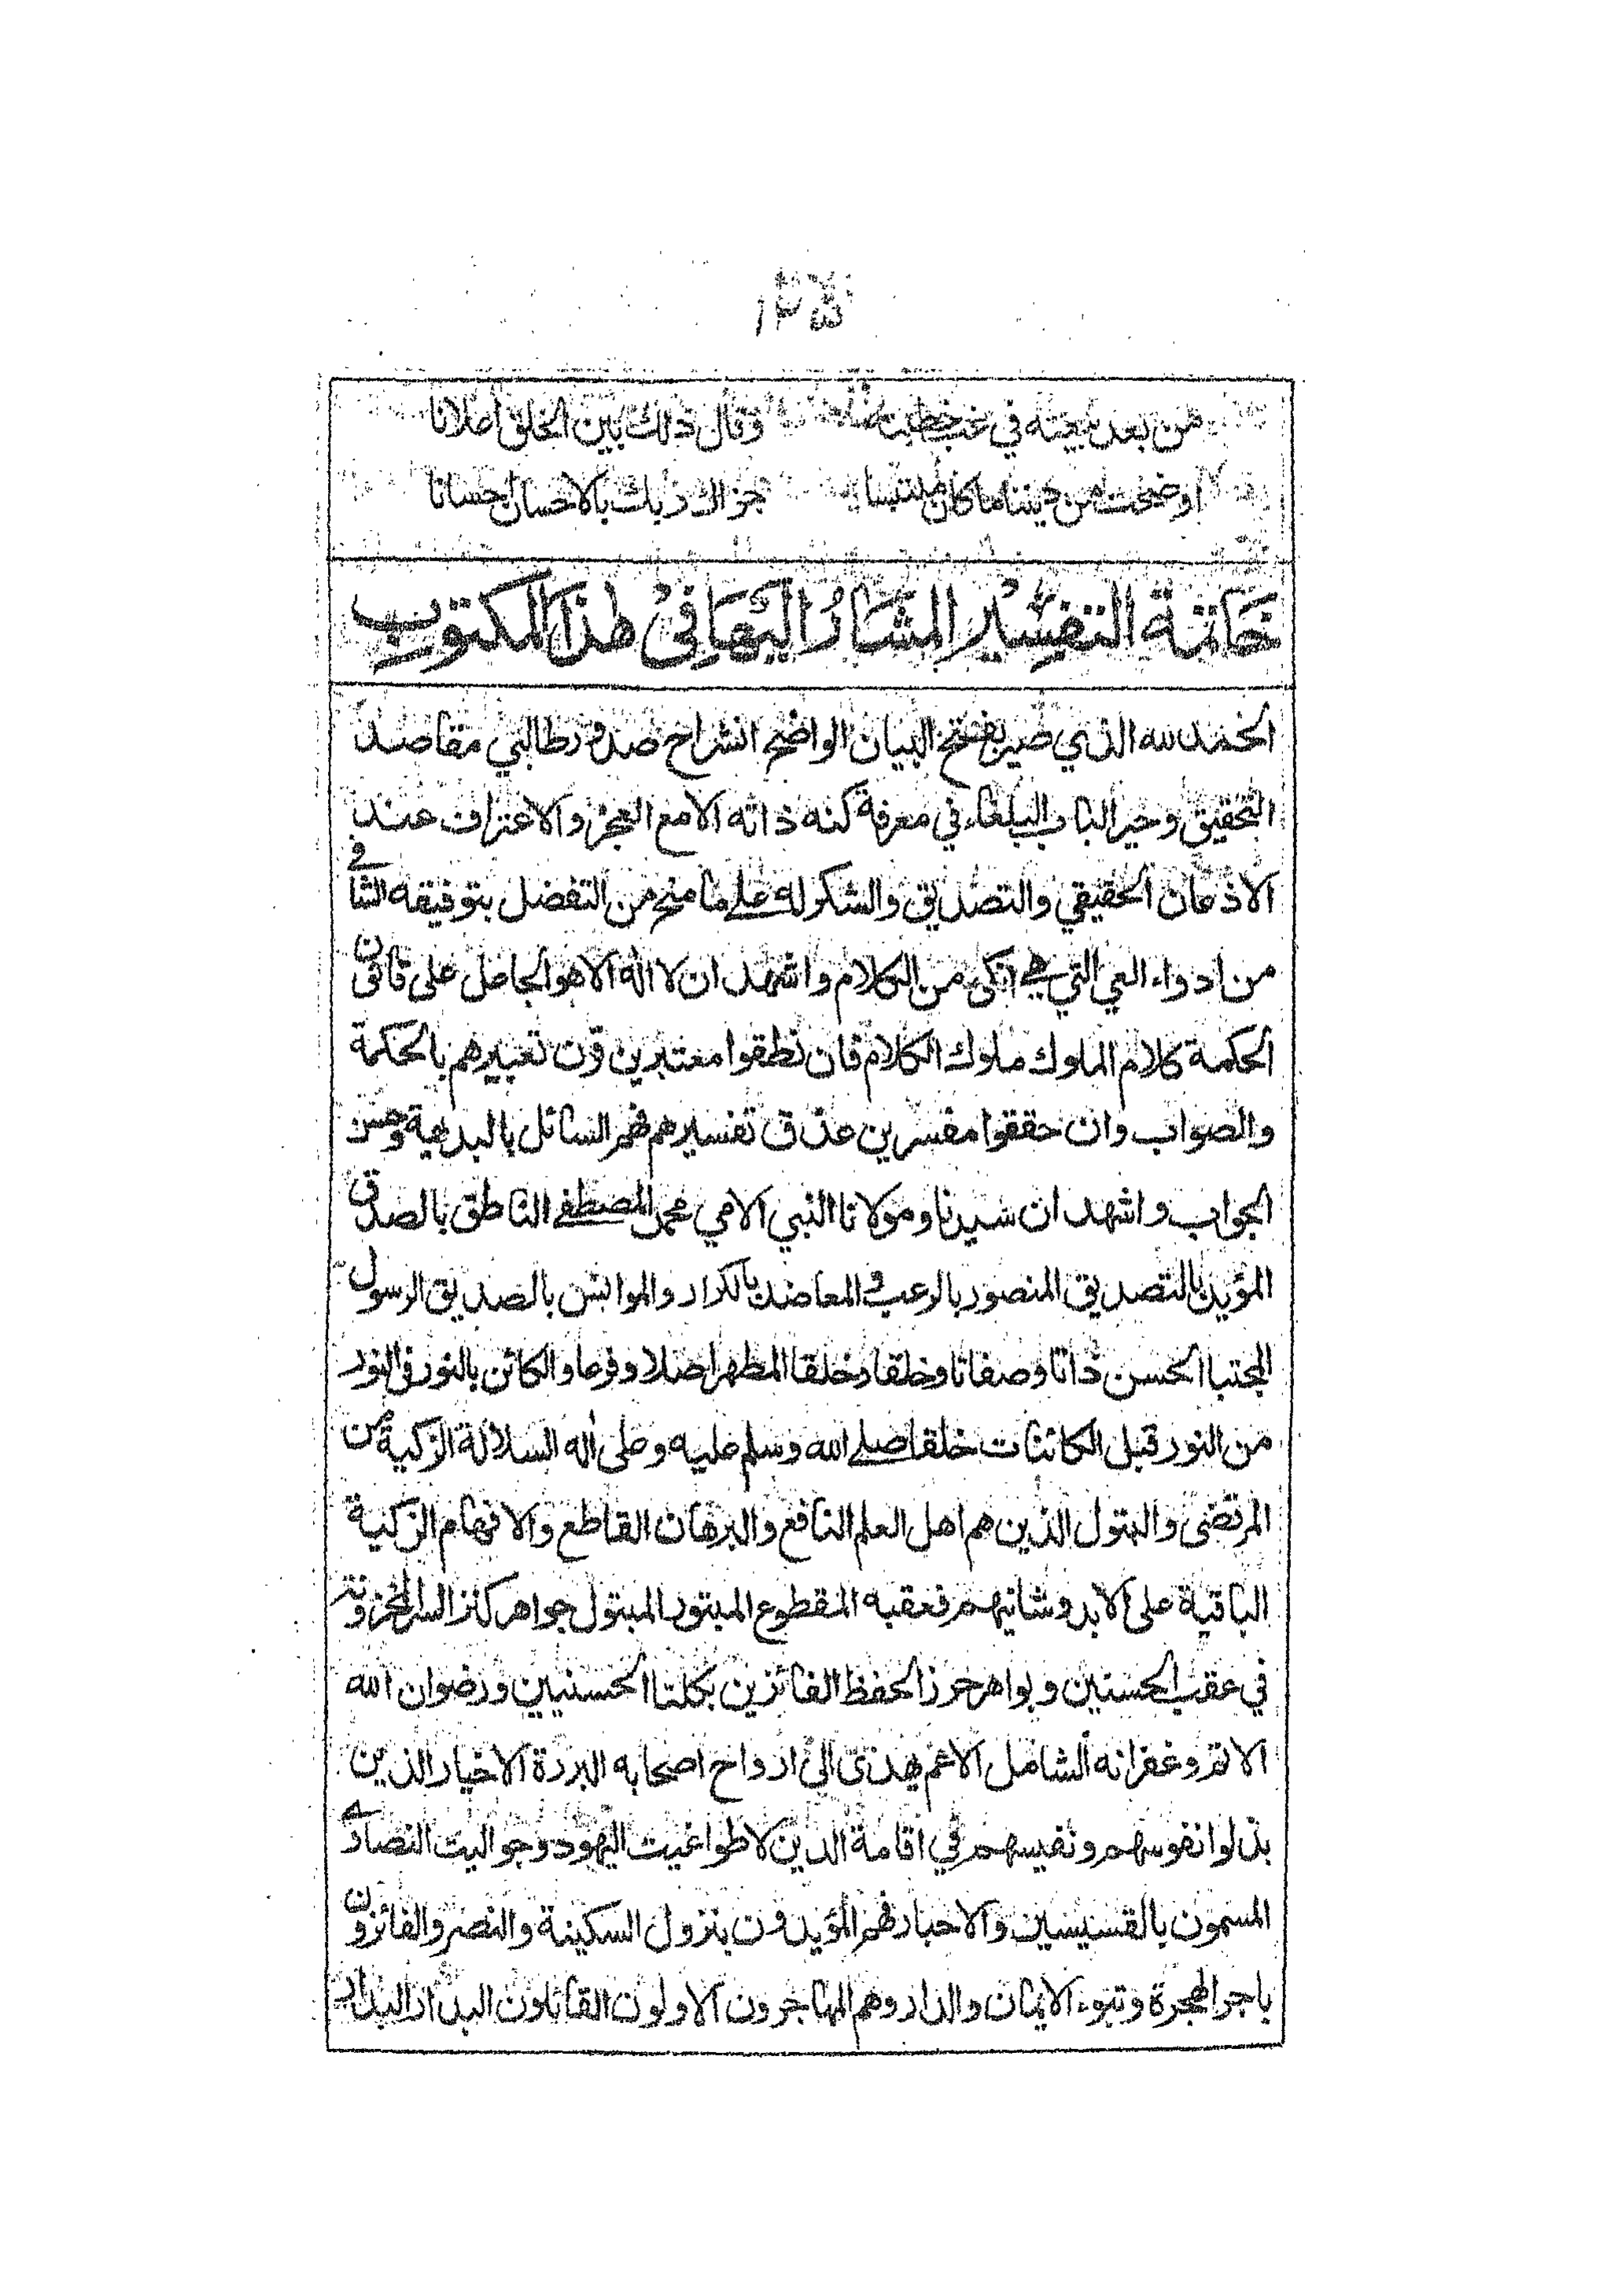 ١٢٥
من بعد بيعته في غب خطبته وقال ذلك بين الخلق اعلانا
اوضحت من ديننا ما كان ملتبسا جزاك ربك بالاحسان احسانا
خاتمة التفسير المشار اليها في هذا المكتوب
الحمد لله الذي صير بفتح البيان الواضح انشراح صدور طالبي مقاصد
التحقيق وحير الباب البلغاء في معرفة كنه ذاته الا مع العجز والاعتراف عند
الاذعان الحقيقي والتصديق والشكر له على ما منح من التفضل بتوفيقه الشافي
من ادواء العي التي هي انكى من الكلام واشهد ان لا اله الا هو الجاعل على قانون
الحكمة كلام الملوك ملوك الكلام فان نطقوا معتبرين قرن تعبيرهم بالحكمة
والصواب وان حققوا مفسرين عذق تفسيرهم فهم السائل بالبديهة وحسن
الجواب واشهد ان سيدنا ومولانا النبي الامي محمد المصطفى الناطق بالصدق
المؤيد بالتصديق المنصور بالرعب والمعاضد بالكرار والموانس بالصديق الرسول
المجتبا الحسن ذاتا وصفاتا وخلقا وخلقا المطهر اصلا وفرعا والكائن بالنور في النور
من النور قبل الكائنات خلقا صلى الله وسلم عليه وعلى اله السلالة الزكية من
المرتضى والبتول الذين هم اهل العلم النافع والبرهان القاطع والافهام الزكية
الباقية على الابد وشانيهم فعقبه المقطوع المبتور المبتول جواهر كنز السر المخزونة
في عقب الحسنين وبواهر حرز الحفظ الفائزين بكلتا الحسنيين ورضوان الله
الاتم وغفرانه الشامل الاعم يهدى الى ارواح اصحابه البررة الاخيار الذين
بذلوا نفوسهم ونفيسهم في اقامة الدين لا طواغيت اليهود وجواليت النصارى
المسمون بالقسيسين والاحبار فهم المؤيدون بنزول السكينة والنصر والفائزون
باجر الهجرة وتبوء الايمان والدار وهم المهاجرون الاولون القائلون البدار البدار